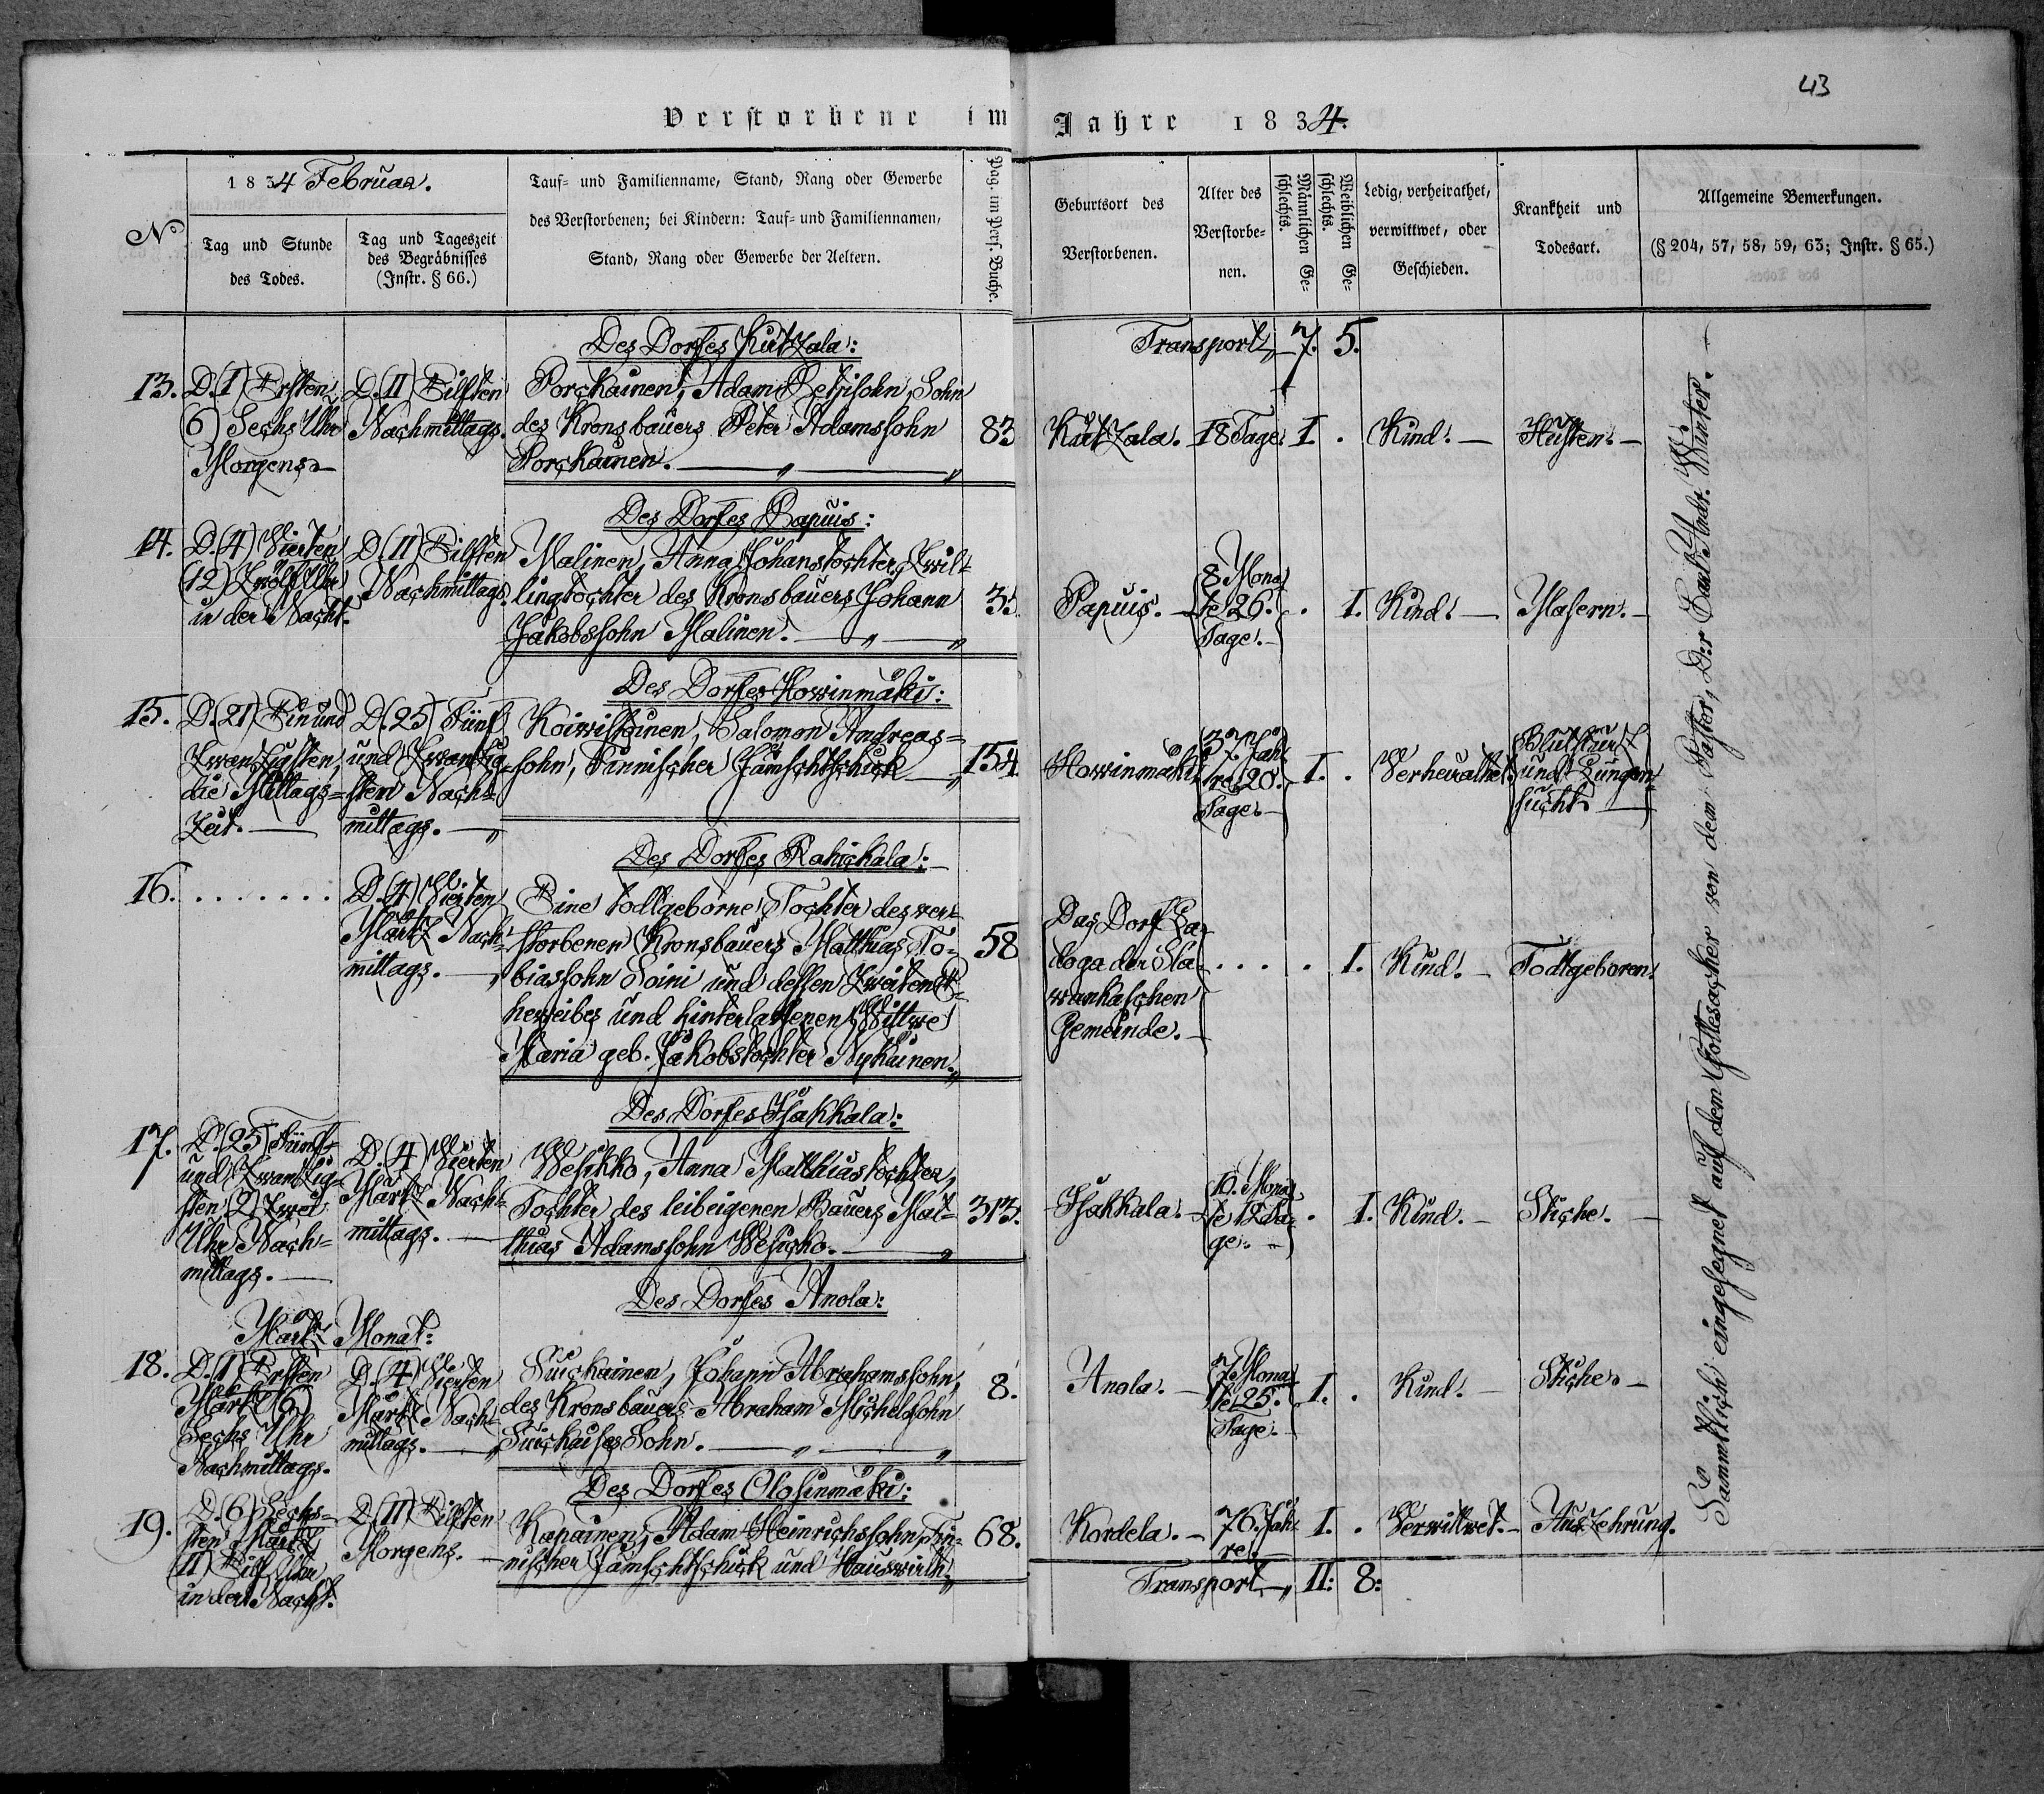 43
Verstorbene im Jahre 1834.
No
1834 Februar.
Tag und Stunde
des Todes.
Tag und Tageszeit
des Begräbnisses
(Instr. § 66.)
Tauf- und Familienname, Stand, Rang oder Gewerbe
des Verstorbenen; bei Kindern: Tauf- und Familiennamen,
Stand, Rang oder Gewerbe der Aeltern.
Pag. im Pers. Buche.
Geburtsort des
Verstorbenen.
Alter des
Verstorbe-
nen.
Männlichen Ge-
schlechts.
Weiblichen Ge-
schlechts.
Ledig, verheirathet,
verwittwet, oder
Geschieden.
Krankheit und
Todesart.
Allgemeine Bemerkungen.
(§ 204, 57, 58, 59, 63; Instr. § 65.)
Transport 7. 5.
Des Dorfes Kutzala:
13.
D. (1) Ersten
(6) Sechs Uhr
Morgens
D. (11) Eilften
Nachmittags.
Porckainen, Adam Petrisohn, Sohn
des Kronsbauers Peter Adamssohn
Porckainen.
83
Kutzala.
18 Tage
1. .
Kind.
Husten.
Des Dorfes Papuis:
14.
D. (4) Vierten
(12) Zwölf Uhr
in der Nacht.
D. (11) Eilften
Nachmittags.
Malinen, Anna Johanstochter, Zwil-
lingtochter des Kronsbauers Johann
Jakobssohn Malinen.
Papuis.
8 Mona
te 26.
Tage.
. 1.
Kind.
Masern.
Des Dorfes Howinmäki:
15.
D. (21) Ein und
Zwanzigsten,
die Mittags-
Zeit.
D. (25) Fünf
und Zwanzig-
sten Nach-
mittags.
Koiwistoinen, Salomon Andreas-
sohn, Finnischer Jämschtschick
154
Howinmäki
37. Jah
re 20.
Tage
1. .
Verheirathet
Blutsturz
und Lungen-
sucht
Des Dorfes Rahickala:
16.
D. (4) Vierten
Märtz Nach-
mittags.
Eine todtgeborne Tochter des ver-
storbenen Kronsbauers Matthias To-
biassohn Soini und dessen zweiten E-
heweibes und hinterlassenen Wittwe
Maria geb. Jakobstochter Nykäinen.
58
Das Dorf La-
doga der Sla-
wankaschen
Gemeinde.
. 1.
Kind.
Todtgeboren.
Des Dorfes Isakkala:
17.
D. (25) Fünf-
und Zwanzig-
sten (2) Zwei
Uhr Nach-
mittags.
D. (4) Vierten
Märtz Nach-
mittags.
Wesikko, Anna Matthiastochter,
Tochter des leibeigenen Bauers Mat-
thias Adamssohn Wesicko.
313.
Isakkala.
10. Mona
te 12 Ta-
ge.
. 1.
Kind.
Stiche.
Des Dorfes Anola:
Märtz Monat:
18.
D. (1) Ersten
Märtz (6)
Sechs Uhr
Nachmittags.
D. (4) Vierten
Märtz Nach-
mittags.
Suickainen, Johann Abrahamssohn,
des Kronsbauers Abraham Michelssohn
Suickaises Sohn.
8.
Anola.
7 Mona
te 25.
Tage.
1. .
Kind.
Stiche.
Des Dorfes Olosinmäki:
19.
D. (6) Sechs-
sten Märtz
(11) Eilf Uhr
in der Nacht.
D. (11) Eilften
Morgens.
Kapainen, Adam Heinrichssohn, Fin-
nischer Jämschtschick und Hauswirth
68.
Kordela.
76. Jah-
re
1. .
Verwittwet.
Auszehrung.
Transport 11: 8:
Sämmtlich eingesegnet auf dem Gottesacker von dem Pastor, Winter.